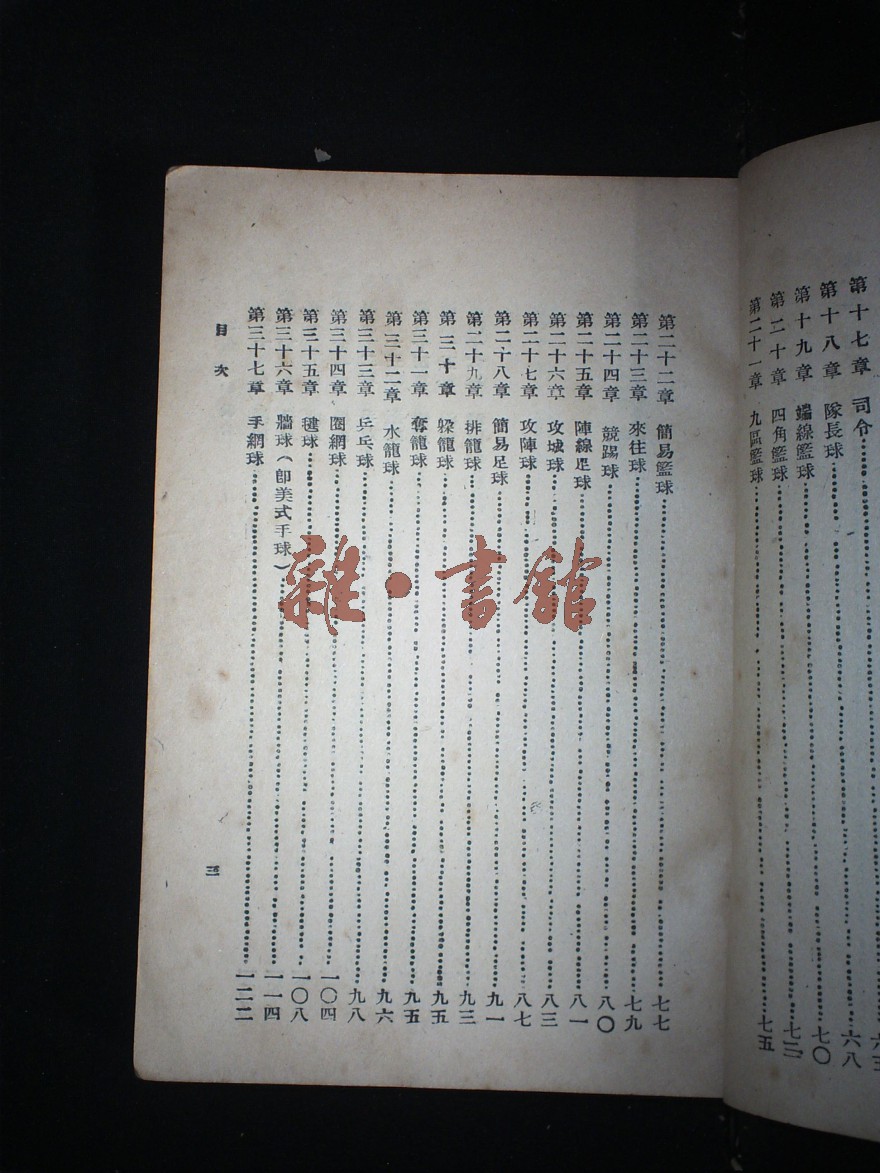 第十七章 司令
第十八章 隊長球 六八
第十九章 端線籃球 七〇
第二十章 四角籃球 七二
第二十一章 九區籃球 七五
第二十二章 簡易籃球 七七
第二十三章 來往球 七九
第二十四章 競踢球 八〇
第二十五章 陣線足球 八一
第二十六章 攻城球 八三
第二十七章 攻陣球 八七
第二十八章 簡易足球 九一
第二十九章 排籠球 九三
第三十章 躲籠球 九五
第三十一章 奪籠球 九五
第三十二章 水籠球 九六
第三十三章 乒乓球 九八
第三十四章 圈網球 一〇四
第三十五章 毽球 一〇八
第三十六章 牆球(卽美式手球) 一一四
第三十七章 手網球 一二二
目次
三
雜·書館